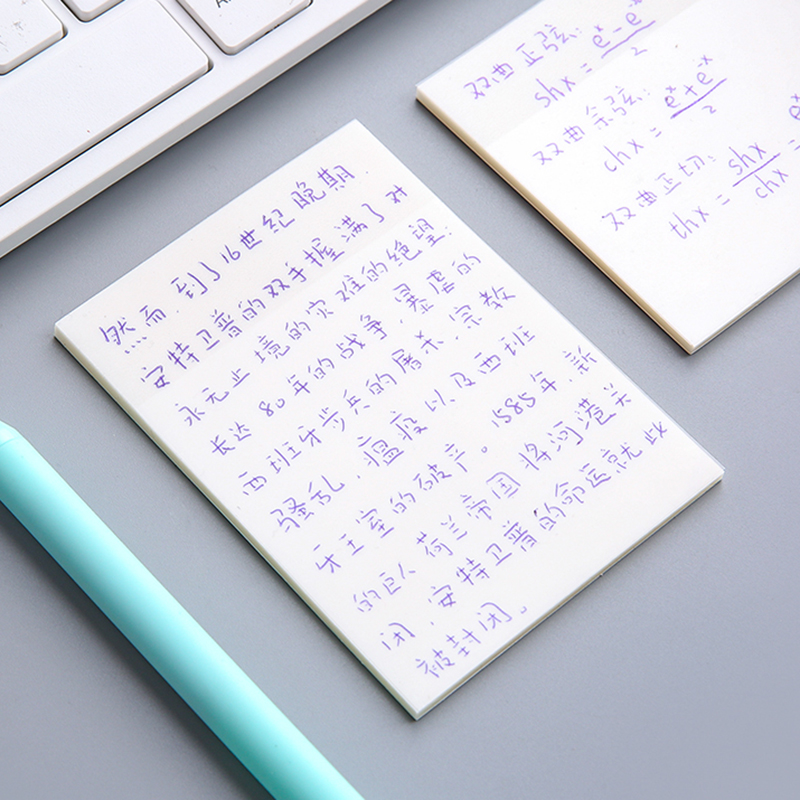 然而,到了16世纪晚期.
安特卫普的双手握满了对
永无止境的灾难的绝望:
长达80年的战争,暴虐的
西班牙步兵的屠杀,宗教
骚乱,瘟疫以及西班
牙王室的破产。1585年,新
的巨人荷兰帝国将河港关
闭,安特卫普的命运就此
被封闭。
双曲正弦:
shx = (eˣ - e⁻ˣ)/2
双曲余弦:
chx = (eˣ + e⁻ˣ)/2
双曲正切:
thx = shx/chx = eˣ